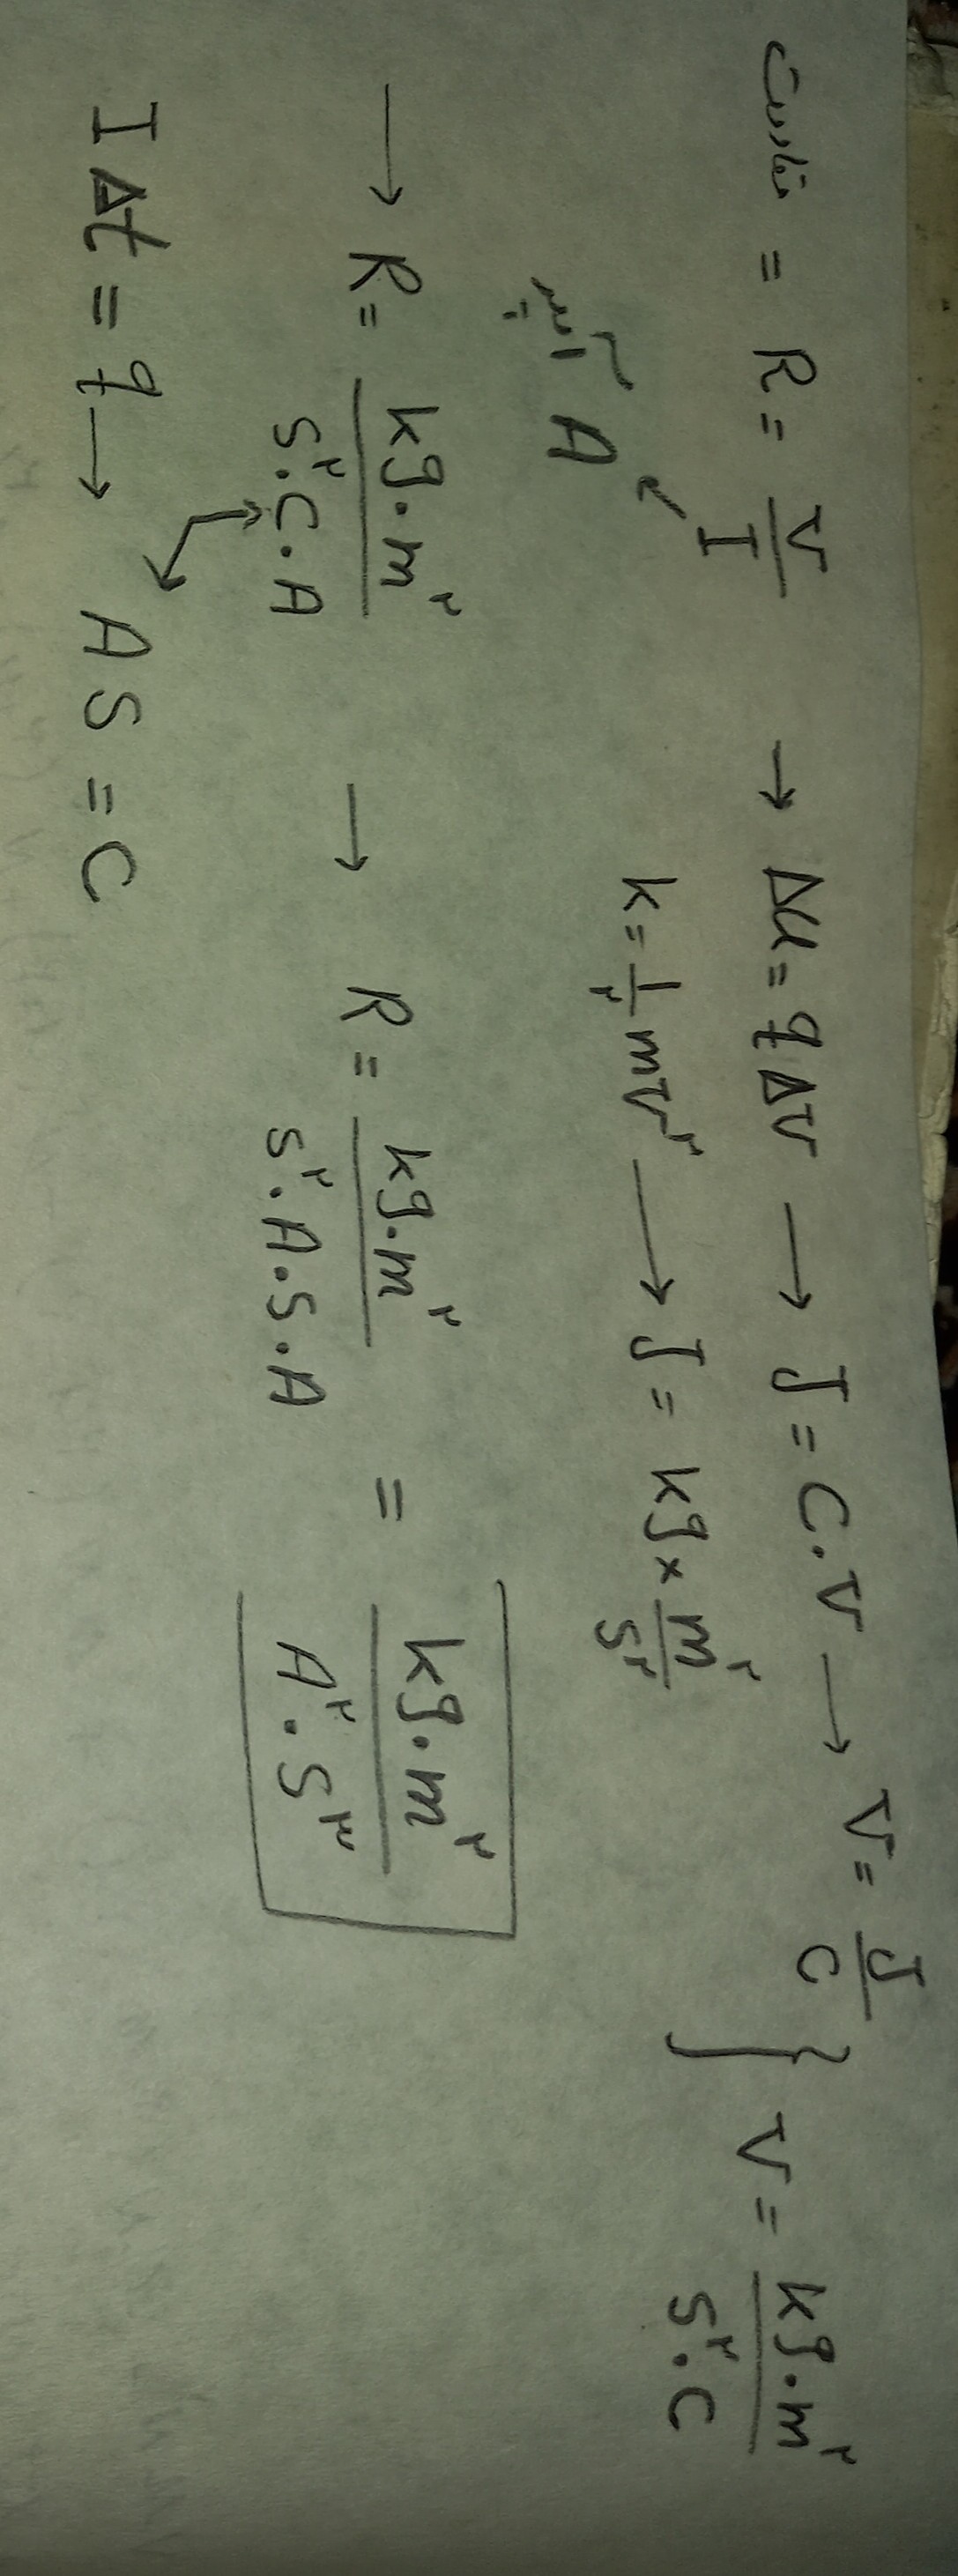 مقاومت = R = V/I → ΔU = qΔV → J = C.V → V = J/C } V = kg.m²/s².C
آمپر A ↙ K = ۱/۲ mV² → J = kg × m²/s²
→ R = kg.m²/s².C.A → R = kg.m²/s².A.s.A = kg.m²/A².s³
IΔt = q → As = C